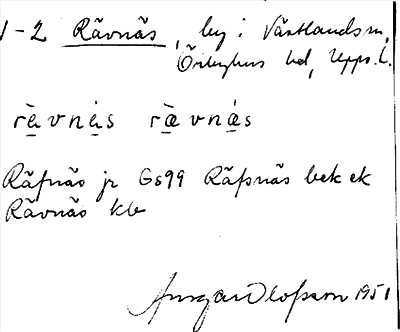 1-2 Rävnäs, by i Västlands sn,
Örbyhus hd, Upps. l.
rä̀vnä́s ræ̀vnǽs
Räfnäs jr Gs99 Räfsnäs bek ek
Rävnäs kb
Ansgar Olofsson 1951